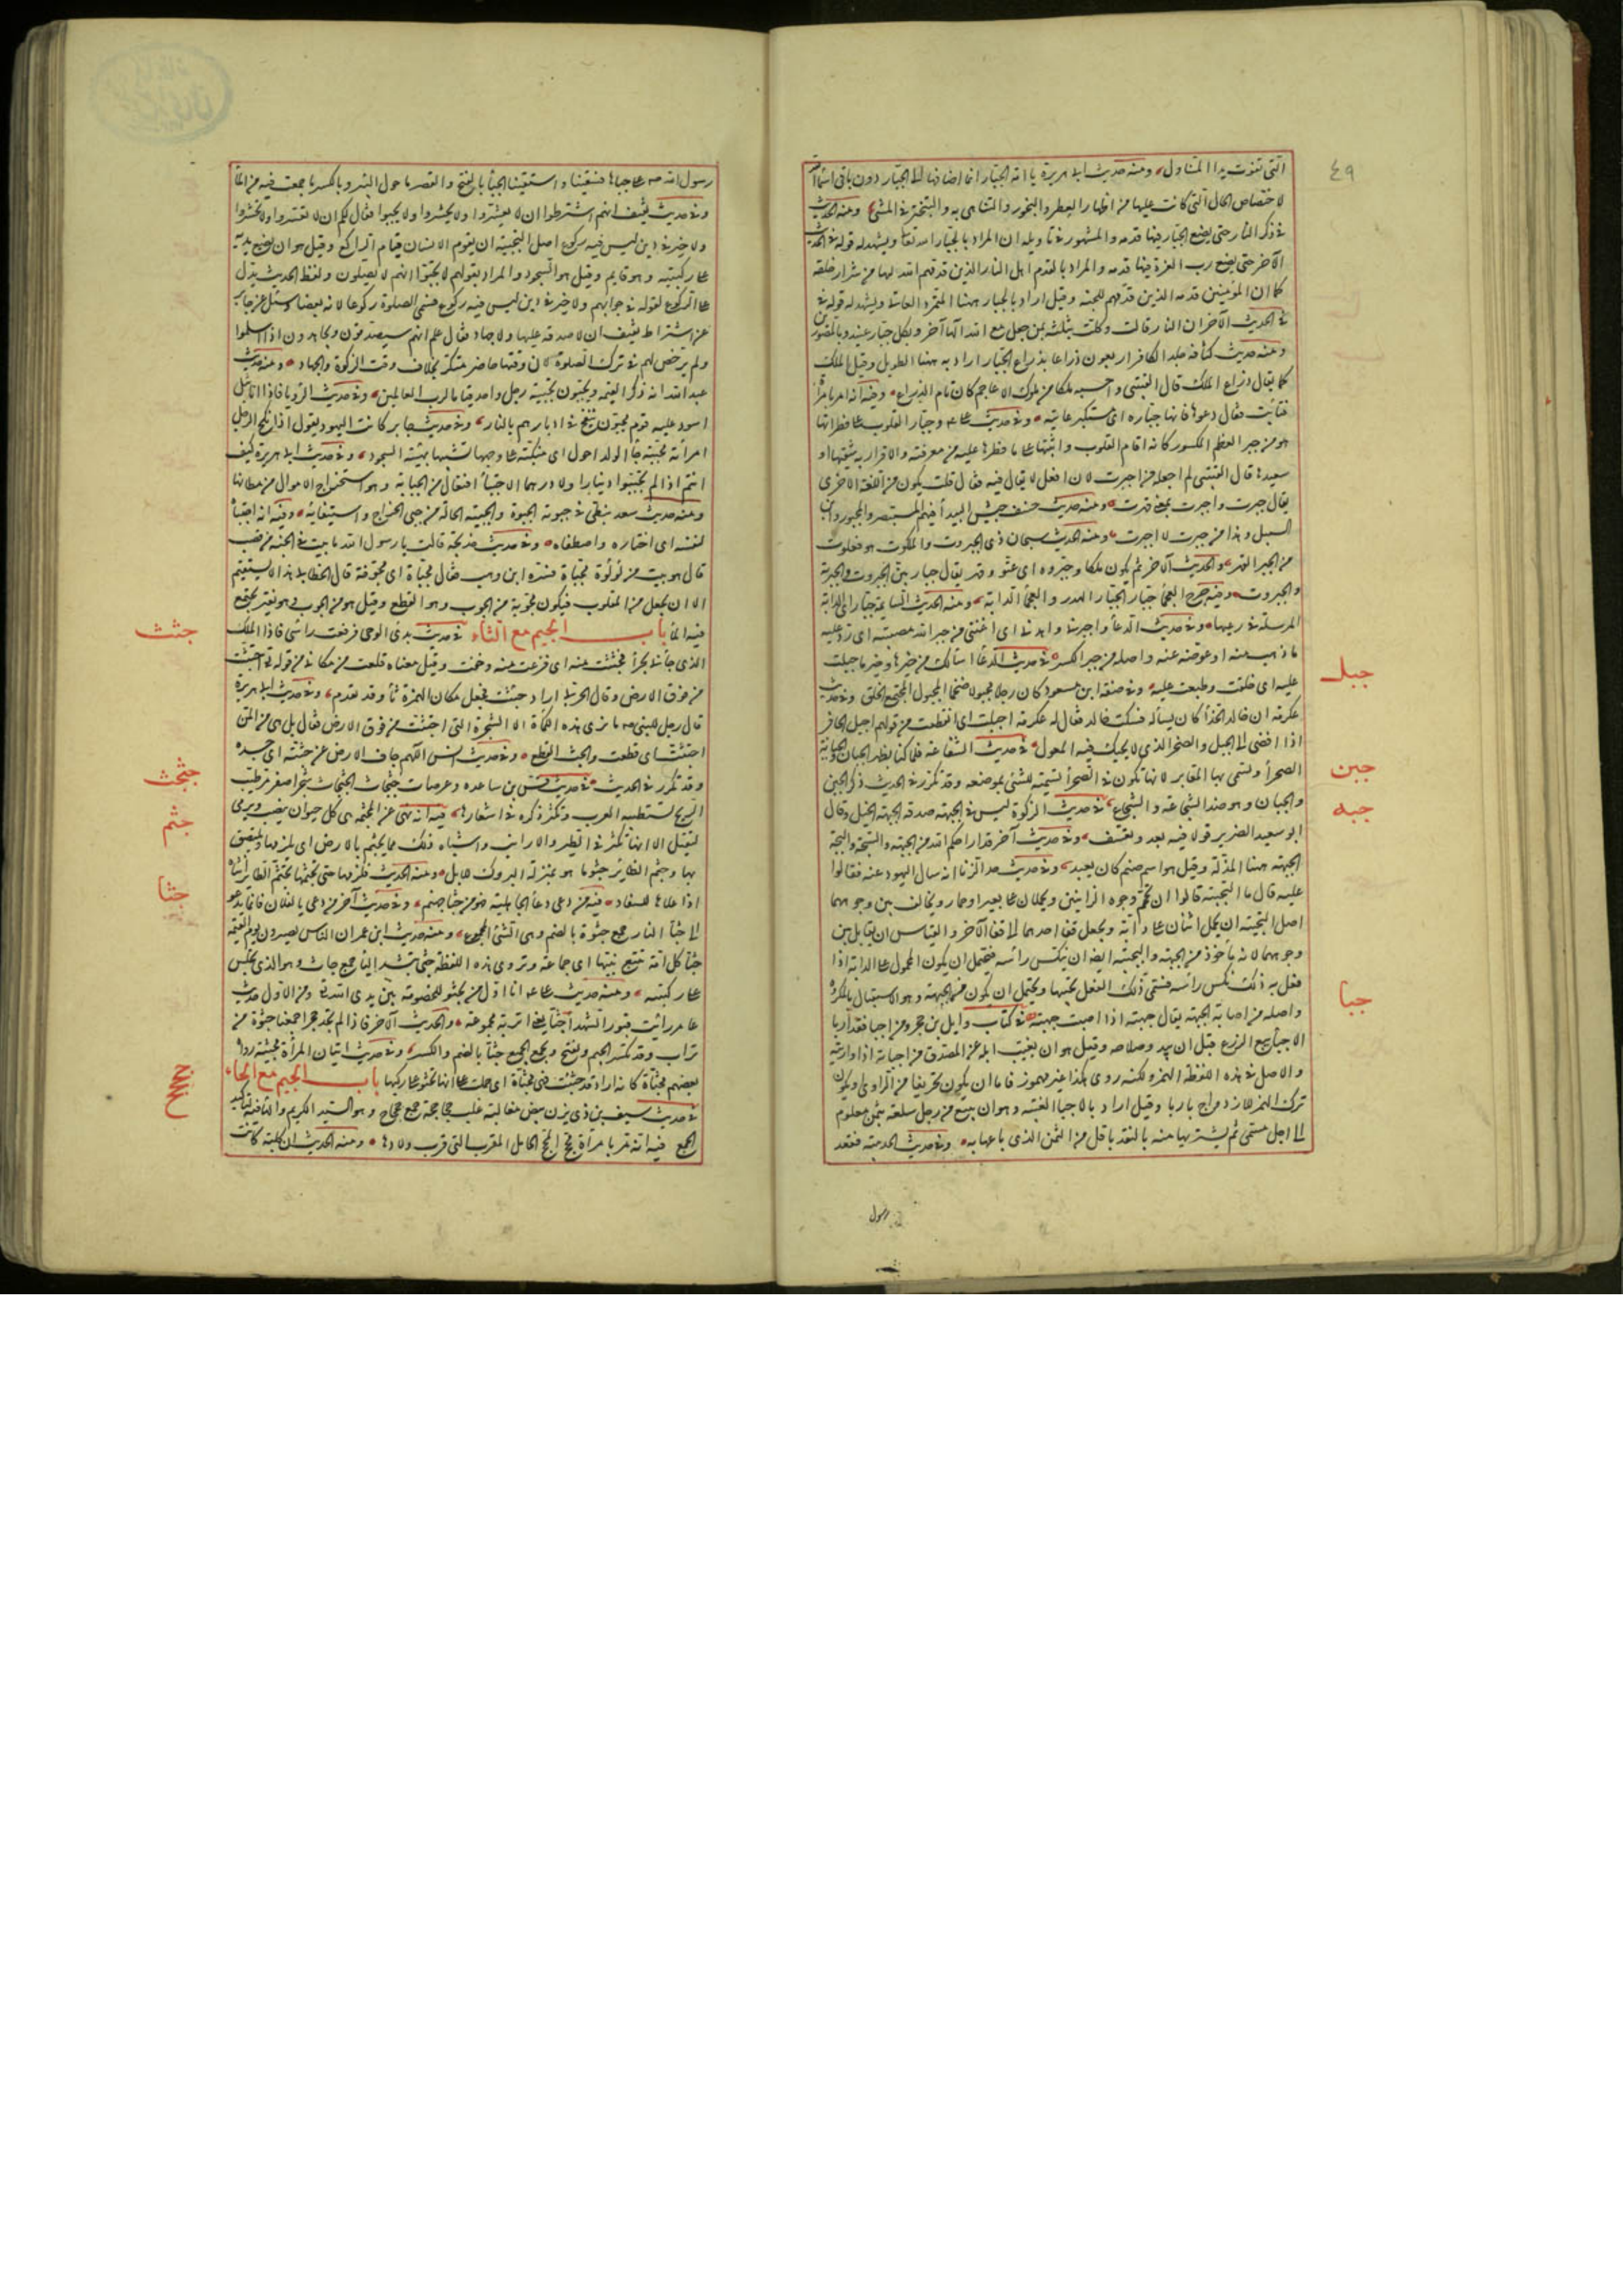 ٤٩
التى تفوت يد المتناول، ومنه حديث ابى هريرة يا امة الجبار انما اضافها الى الجبار دون باقى اسمائه
لاختصاص الحال التى كانت عليها من اظهار العطر والبخور والتباهى به والتبختر فى المشى، ومنه الحديث
فى ذكر النار حتى يضع الجبار فيها قدمه والمشهور فى تاويله ان المراد بالجبار الله تعالى ويشهد له قوله فى الحديث
الآخر حتى يضع رب العزة فيها قدمه والمراد بالقدم اهل النار الذين قدمهم الله لها من شرار خلقه
كما ان المؤمنين قدمه الذين قدمهم للجنة وقيل اراد بالجبار ههنا المتمرد العاتى ويشهد له قوله
فى الحديث الآخر ان النار قالت وكلت بثلثة بمن جعل مع الله آلها آخر وبكل جبار عنيد وبالمصورين
ومنه حديث كثافة جلد الكافر اربعون ذراعا بذراع الجبار اراد به ههنا الطويل وقيل الملك
كما يقال ذراع الملك قال القتيبى واحسبه ملكا من ملوك الاعاجم كان تام الذراع، وفيه انه امر امرأة
فتأبت فقال دعوها فانها جبارة اى مستكبرة عاتية، وفى حديث على وجبار القلوب على فطراتها
هو من جبر العظم المكسور كانه اقام القلوب واثبتها على ما فطرها عليه من معرفته والاقرار به شقيها او
سعيدها قال القتيبى لم اجعله من اجبرت لان افعل لا يقال فيه فعّال قلت يكون من اللغة الاخرى
يقال جبرت واجبرت بمعنى قهرت، ومنه حديث خسف جيش البيداء فيهم المستبصر والمجبور وابن
السبيل وهذا من جبرت لا اجبرت، ومنه الحديث سبحان ذى الجبروت والملكوت هو فعلوت
من الجبر القهر، والحديث الآخر ثم يكون ملكا وجبروة اى عتو وقهر يقال جبار بين الجبروت والجبرية
والجبروت، وفيه جرح العجماء جبار الجبار الهدر والعجماء الدابة، ومنه الحديث السائمة جبار اى الدابة
المرسلة فى رعيها، وفى حديث الدعاء واجبرنى واهدنى اى اغننى من جبر الله مصيبته اى رد عليه
ما ذهب منه او عوضه عنه واصله من جبر الكسر، فى حديث الدعاء اسالك من خيرها وخير ما جبلت
عليه اى خلقت وطبعت عليه، وفى صفة ابن مسعود كان رجلا مجبولا ضخما المجبول المجتمع الخلق، وفى حديث
عكرمة ان خالد الحذاء كان يسأله فسكت خالد فقال له عكرمة اجبلت اى انقطعت من قولهم اجبل الحافر
اذا افضى الى الجبل والصخر الذى لا يحيك فيه المعول، فى حديث الشفاعة فلما كنا بظهر الجبان الجبانة
الصحراء وتسمى بها المقابر لانها تكون فى الصحراء تسمية للشئ بموضعه وقد تكرر فى الحديث ذكر الجبن
والجبان وهو ضد الشجاعة والشجاع، فى حديث الزكوة ليس فى الجبهة صدقة الجبهة الخيل وقال
ابو سعيد الضرير قولا فيه بعد وتعسف، وفى حديث آخر قد اراحكم الله من الجبهة والسجة والبجة
الجبهة ههنا المذلة وقيل هو اسم صنم كان يعبد، وفى حديث حد الزنا انه سال اليهود عنه فقالوا
عليه قال ما التجبية قالوا ان تحمم وجوه الزانيين ويحملان على بعير او حمار ويخالف بين وجوههما
اصل التجبية ان يحمل اثنان على دابة ويجعل قفا احدهما الى قفا الآخر والقياس ان يقابل بين
وجوههما لانه مأخوذ من الجبهة والتجبية ايضا ان ينكس رأسه فيحتمل ان يكون المحمول على الدابة اذا
فعل به ذلك نكس رأسه فسمى ذلك الفعل تجبيها ويحتمل ان يكون من الجبهة وهو الاستقبال بالمكروه
واصله من اصابة الجبهة يقال جبهته اذا اصبت جبهته، فى كتاب وايل بن حجر ومن اجبا فقد اربا
الاجباء بيع الزرع قبل ان يبدو صلاحه وقيل هو ان يغيب ابله عن المصدق من اجباته اذا واريته
والاصل فى هذه اللفظة الهمز ولكنه روى هكذا غير مهموز فاما ان يكون تحريفا من الراوى او يكون
ترك الهمز للازدواج باربا وقيل اراد بالاجباء العينة وهو ان يبيع من رجل سلعة بثمن معلوم
الى اجل مسمى ثم يشتريها منه بالنقد باقل من الثمن الذى باعها به، وفى حديث الحديبية فقعد
رسول
جبل
جبن
جبه
جبا
رسول الله ص على جباها فسقينا واستقينا الجبا بالفتح والقصر ما حول البئر وبالكسر ما جمعت فيه من الماء
وفى حديث ثقيف انهم اشترطوا ان لا يعشروا ولا يحشروا ولا يجبوا فقال لكم ان لا تعشروا ولا تحشروا
ولا خير فى دين ليس فيه ركوع اصل التجبية ان يقوم الانسان قيام الراكع وقيل هو ان يضع يديه
على ركبتيه وهو قايم وقيل هو السجود والمراد بقولهم لا يجبوا انهم لا يصلون ولفظ الحديث يدل
على الركوع لقوله فى جوابهم ولا خير فى دين ليس فيه ركوع فسمى الصلوة ركوعا لانه بعضها وسئل عن جابر
عن اشتراط ثقيف ان لا صدقة عليها ولا جهاد فقال علم انهم سيصدقون ويجاهدون اذا اسلموا
ولم يرخص لهم فى ترك الصلوة لان وقتها حاضر متكرر بخلاف وقت الزكوة والجهاد، ومنه حديث
عبد الله انه ذكر القيمة ويجبون تجبية رجل واحد قياما لرب العالمين، وفى حديث الرؤيا فاذا انا بتل
اسود عليه قوم مجبون ينفخ فى ادبارهم بالنار، وفى حديث جابر كانت اليهود يقول اذا نكح الرجل
امرأته مجبية جاء الولد احول اى منكبة على وجهها تشبيها بهيئة السجود، وفى حديث ابى هريرة كيف
انتم اذا لم تجتبوا دينارا ولا درهما الاجتباء افتعال من الجباية وهو استخراج الاموال من مظانها
ومنه حديث سعد نبطى فى جبوته الجبوة والجبية الحالة من جبى الخراج واستيفائه، وفيه انه اجتباه
لنفسه اى اختاره واصطفاه، وفى حديث خديجة قالت يا رسول الله ما بيت فى الجنة من قصب
قال هو بيت من لؤلؤة مجباة فسره ابن وهب فقال مجباة اى مجوفة قال الخطابى هذا لا يستقيم
الا ان يجعل من المقلوب فيكون مجوبة من الجوب وهو القطع وقيل هو من الجوب وهو نقير يجتمع
فيه الماء باب الجيم مع الثاء فى حديث بدئ الوحى فرفعت راسى فاذا الملك
الذى جاءنى بحراء فجثثت منه اى فزعت منه وخفت وقيل معناه قلعت من مكانى من قوله تع اجتثت
من فوق الارض وقال الحربى اراد جئثت فجعل مكان الهمزة ثاء وقد تقدم، وفى حديث ابى هريرة
قال رجل للنبى ص ما نرى هذه الكمأة الا الشجرة التى اجتثت من فوق الارض فقال بل هى من المن
اجتثت اى قطعت والجث القطع، وفى حديث انس اللهم جاف الارض عن جثته اى جسده
وقد تكرر فى الحديث، فى حديث قس بن ساعده وعرصات جثجاث الجثجاث شجر اصفر مر طيب
الريح تستطيبه العرب وتكثر ذكره فى اشعارها، فيه انه نهى عن المجثمة هى كل حيوان ينصب ويرمى
ليقتل الا انها تكثر فى الطير والارانب واشباه ذلك مما يجثم بالارض اى يلزمها ويلتصق
بها وجثم الطاير جثوما هو بمنزلة البروك للابل، ومنه الحديث فلزمها حتى تجثمها تجثم الطاير انثاه
اذا علاها للسفاد، فيه من دعى دعاء الجاهلية فهو من جثا جهنم، وفى حديث آخر من دعى يا لفلان فانما يدعو
الى جثا النار جمع جثوة بالضم وهى الشئ المجموع، ومنه حديث ابن عمر ان الناس يصيرون يوم القيمة
جثا كل امة تتبع نبيها اى جماعة وتروى هذه اللفظة جثى بتشديد الياء جمع جاث وهو الذى يجلس
على ركبتيه، ومنه حديث على انا اول من يجثو للخصومة بين يدى الله تع ومن الاول حديث
عامر رأيت قبور الشهداء جثا يعنى اتربة مجموعة، والحديث الآخر فاذا لم نجد حجرا جمعنا جثوة من
تراب وقد تكسر الجيم وتفتح ويجمع الجميع جثا بالضم والكسر، وفى حديث اتيان المرأة مجبية رواه
بعضهم مجثاة كانه اراد قد جثيت فهى مجثاة اى حملت على انها تجثو على ركبتها باب الجيم مع الحاء
فى حديث سيف بن ذى يزن بيض مغالبة غلب جحاجحة جمع جحجاح وهو السيد الكريم والتا فيه لتاكيد
الجمع فيه انه مر بامرأة مجح المجح الحامل المقرب التى قرب ولادها، ومنه الحديث ان كلبة كانت
جثث
جثجث
جثم
جثا
جحجح